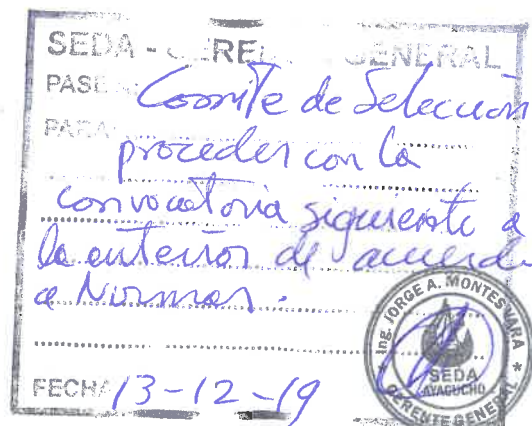 SEDA - GERENCIA GENERAL
PASE A: Comite de Selección
PARA: proceder con la
convocatoria siguiente a
la anterior de acuerdo
a Normas.
FECHA 13-12-19
Ing. JORGE A. MONTES VARA
SEDA
AYACUCHO
GERENTE GENERAL